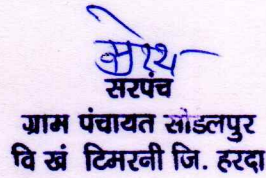 सरपंच
ग्राम पंचायत सोडलपुर
वि खं टिमरनी जि. हरदा